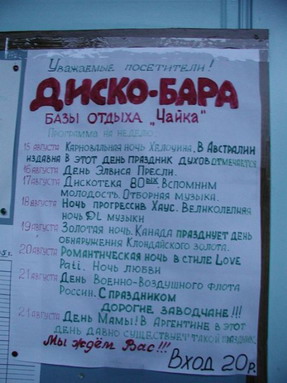 Уважаемые посетители!
ДИСКО-БАРА
БАЗЫ ОТДЫХА „ЧАЙКА"
Программа на неделю:
15 АВГУСТА Карновальная ночь Хелоуина. В Австралии
издавна в этот день праздник духов отмечается
16 АВГУСТА День Элвиса Пресли.
17 АВГУСТА Дискотека 80ых. Вспомним
молодость. Отборная музыка.
18 АВГУСТА Ночь прогрессив Хаус. Великолепная
ночь DL музыки
19 АВГУСТА Золотая ночь. Канада празднует день
обнаружения Клондайского золота.
20 АВГУСТА Романтическая ночь в стиле Love
Pati. Ночь любви
21 АВГУСТА День Военно-Воздушного флота
России. С праздником
дорогие заводчане!!!
21 АВГУСТА День Мамы! В Аргентине в этот
день давно существует такой праздник
Мы ждём Вас!!!
Вход 20 р.